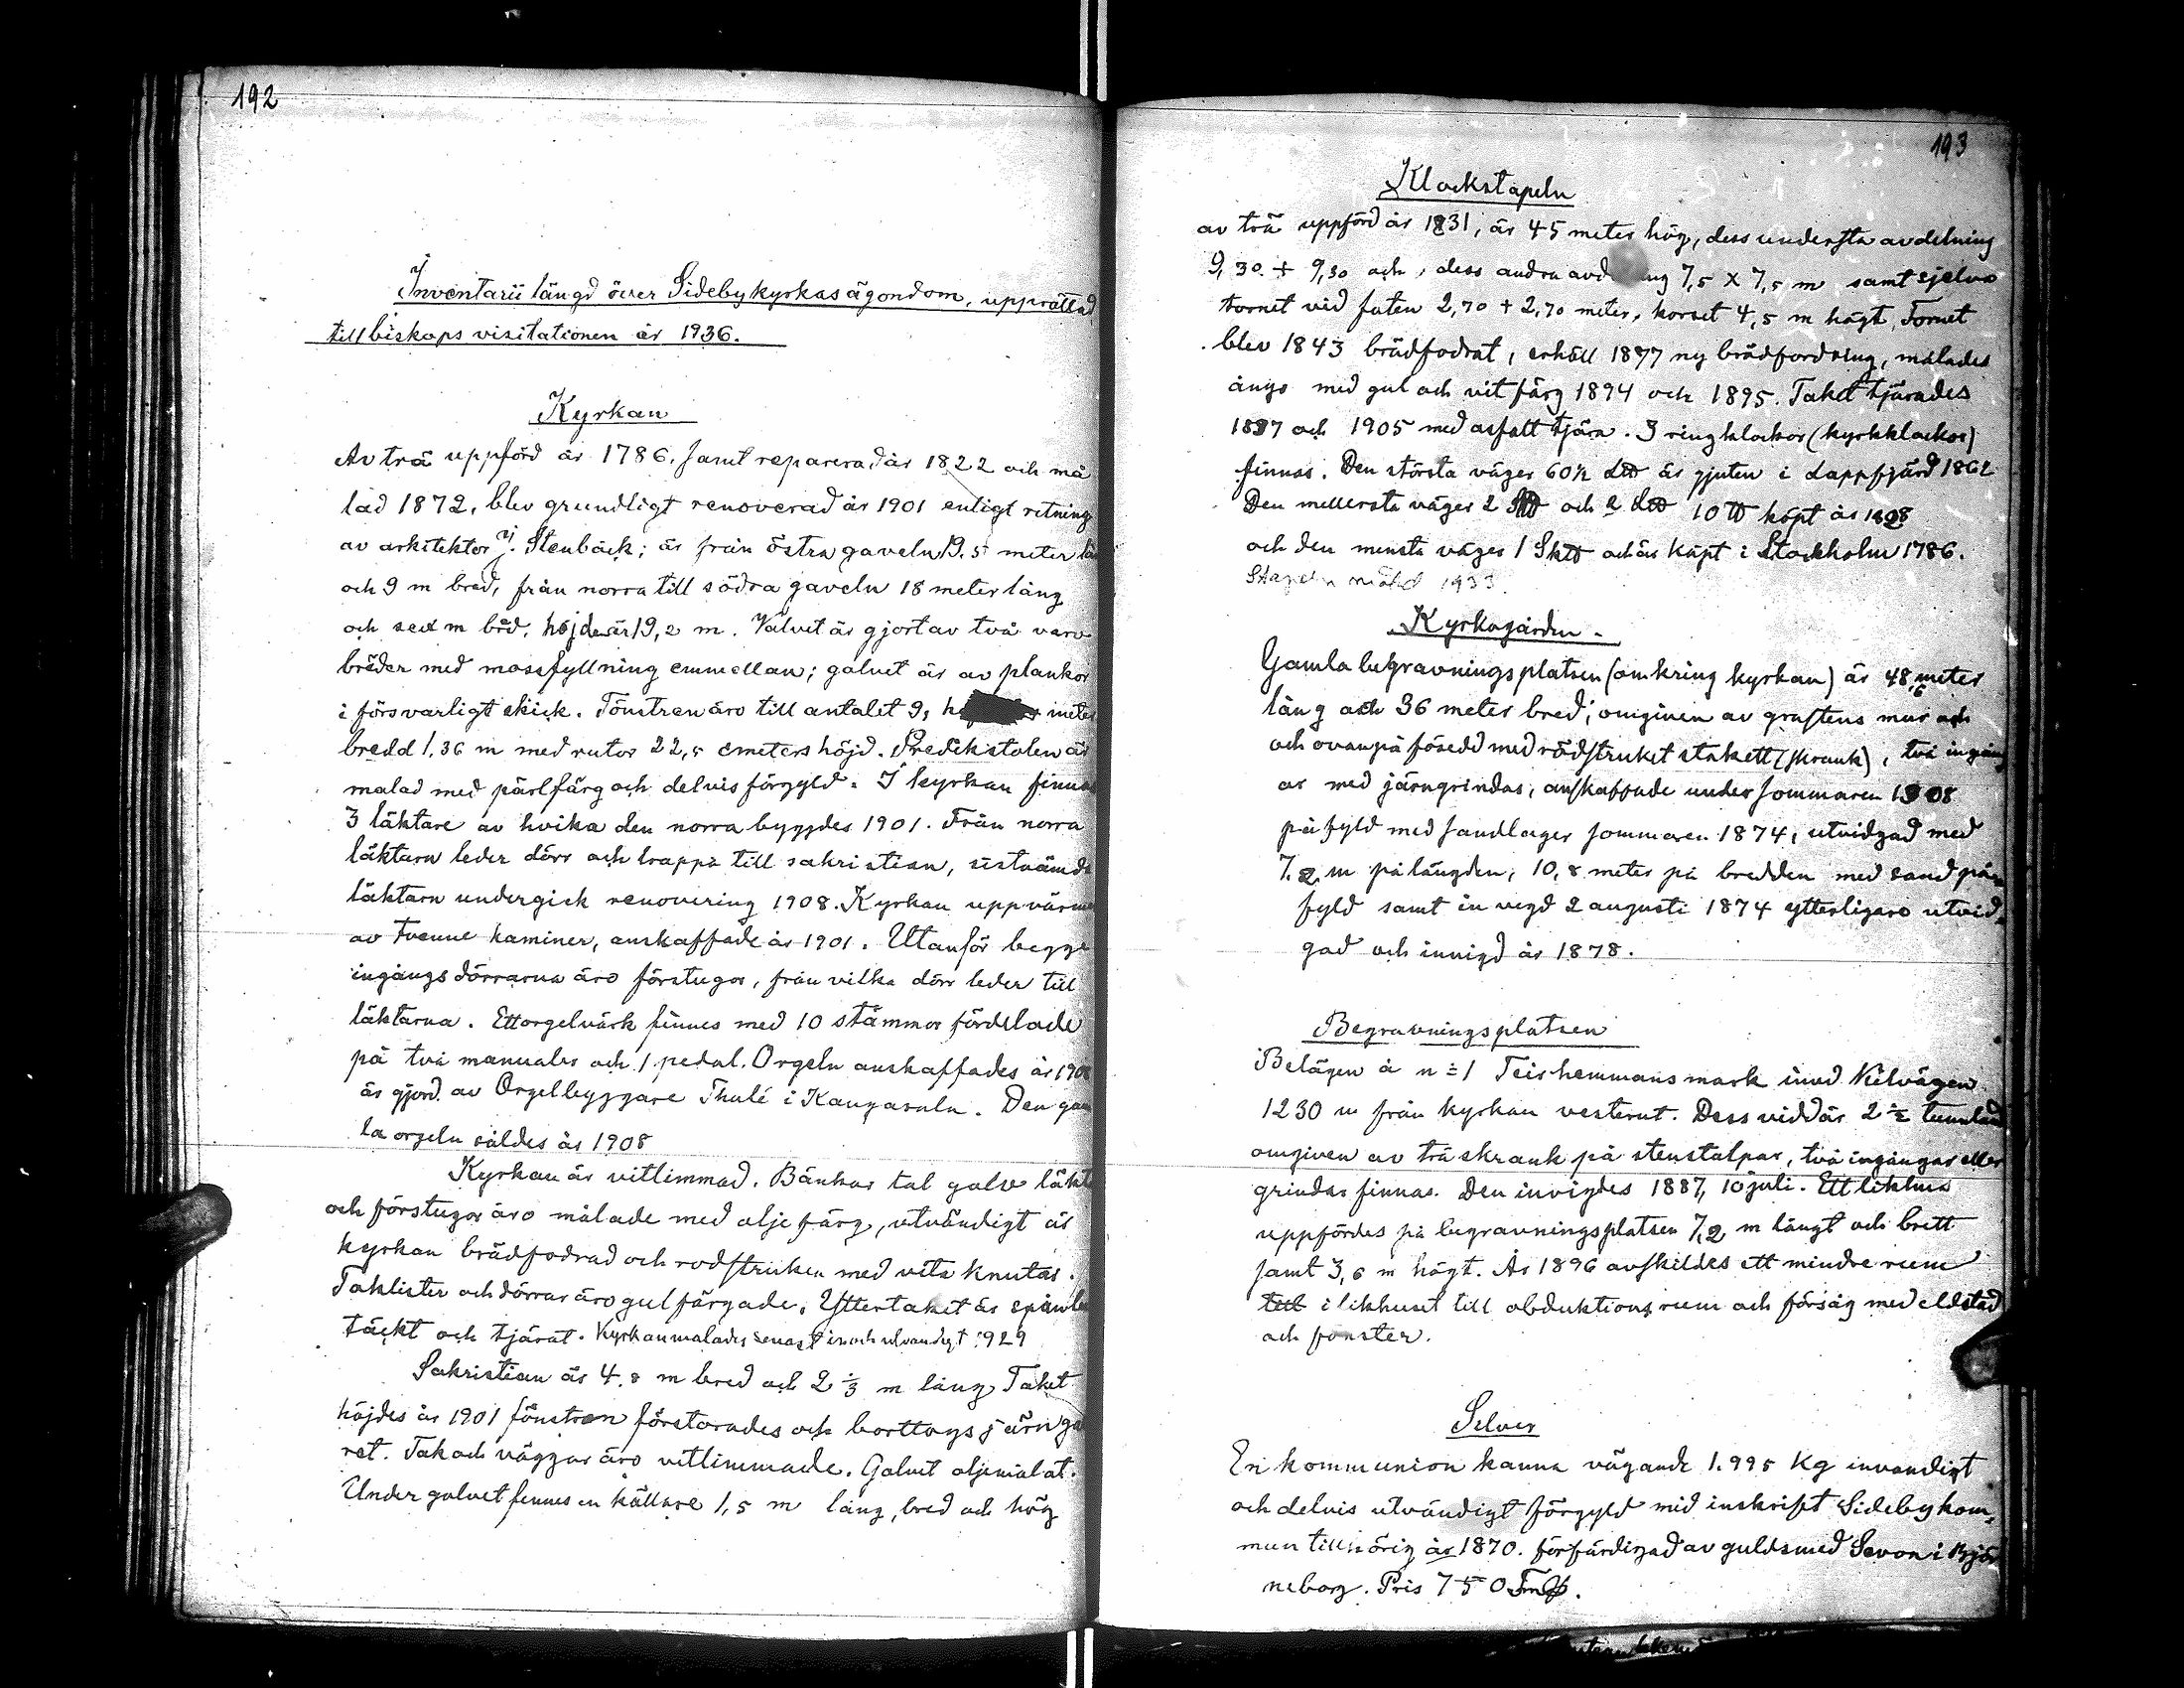 192
Inventarii längd över Sideby kyrkas ägondom, upprättad
till biskops visitationen år 1936.
Kyrkan
Av trä uppförd år 1786. samt reparerad år 1822 och må
lad 1872, blev grundligt renoverad år 1901 enligt ritning
av arkitektor J. Stenbäck; är från östra gaveln 19.5 meter
och 9 m bred, från norra till södra gaveln 18 meter lång
och sex m bred, höjden är 19,2 m. Valvet är gjort av två varv
bräder med mossfyllning emmellan; golvet är av plankor
i försvarligt skick. Fönstren äro till antalet 9, meter
bredd 1.36 m med rutor 22,5 cmeters höjd. Predikstolen är
malad med pärlfärg och delvis förgyld. I kyrkan finnas
3 läktare av hvika den norra byggdes 1901. Från norra
läktarn leder dörr och trappa till sakristian, sistnämda
läktarn undergick renovering 1908. Kyrkan uppvärmes
av tvenne kaminer, anskaffade år 1901. Utanför begge
ingångsdörrarna äro förstugor, från vilka dörr leder till
läktarna. Ett orgelvärk finnes med 10 stämmor fördelade
på två manualer och 1 pedal. Orgeln anskaffades år 1908
är gjord av Orgelbyggare Thulé i Kangasala. Den gam
la orgeln såldes år 1908
Kyrkan är vitlimmad. Bänkar tal golv läkt
och förstugor äro målade med oljefärg, utvändigt är
kyrkan brädfodrad och rodstruken med vita knutar.
Taklister och dörrar äro gulfärgade. Yttertaket är spån
täckt och tjärat. Kyrkan malades senast in och utvandigt 1929
Sakristian är 4.8 m bred och 2 ⅓ m lång Taket
höjdes år 1901 fönstren förstorades och borttogs järnga
ret. Tak och väggar äro vitlimmade. Golvet oljemålat.
Under golvet finnes en källare 1,5 m lång, bred och hög
193
Klockstapeln
av trä uppförd år 1831, är 45 meter hög, dess understa avdelning
9,30 + 9,30 och, dess andra avdelning 7,5 X 7,5 m samt sjelva
tornet vid foten 2,70 + 2,70 meter, korset 4,5 m högt, Tornet
blev 1843 brädfodrat, erhöll 1877 ny brädfordring, målades
ånyo med gul och vit färg 1894 och 1895. Taket tjärades
1887 och 1905 med asfalt tjära. 3 ringklockor (kyrkklockor)
finnas. Den största väger 60½ L℔ är gjuten i Lappfjärd 1862
Den mellersta väger 2 Sk℔ och 2 L℔ 10 ℔ köpt år 1828
och den minsta väger 1 Sk℔ och är köpt i Stockholm 1786.
Stapeln måld 1933.
Kyrkogården.
Gamla begravningsplatsen (omkring kyrkan) är 48,6 meter
lång och 36 meter bred, omgiven av gråstens mur och
och ovanpå försedd med rödstruket stakett (skrank), två ingång
ar med järngrindar, anskaffade under sommaren 1908
påfyld med sandlager sommaren 1874, utvidgad med
7.2 m på längden, 10,8 meter på bredden med sand på
fyld samt invegd 2 augusti 1874 ytterligare utvid
gad och invigd år 1878.
Begravningsplatsen
Belägen å n:1 Teirhemmans mark invd Kilvägen
1230 m från kyrkan vesterut. Dess vidd är 2 ½ tunnland
omgiven av trä skrank på stenstalpar, två ingångar eller
grindar finnas. Den invigdes 1887, 10 juli. Ett likhus
uppfördes på begravningsplatsen 7,2 m långt och brett
samt 3,6 m högt. År 1896 avskildes ett mindre rum
till i likhuset till obduktionsrum och försåg med eldstad
och fonster.
Silver
En kommunion kanna vägande 1.995 Kg invandigt
och delvis utvändigt förgyld mid inskrift Sideby kom,
mun tillhörig år 1870. förfärdigad av guldsmed Sevon i Bjö
neborg. Pris 750 Fmk.